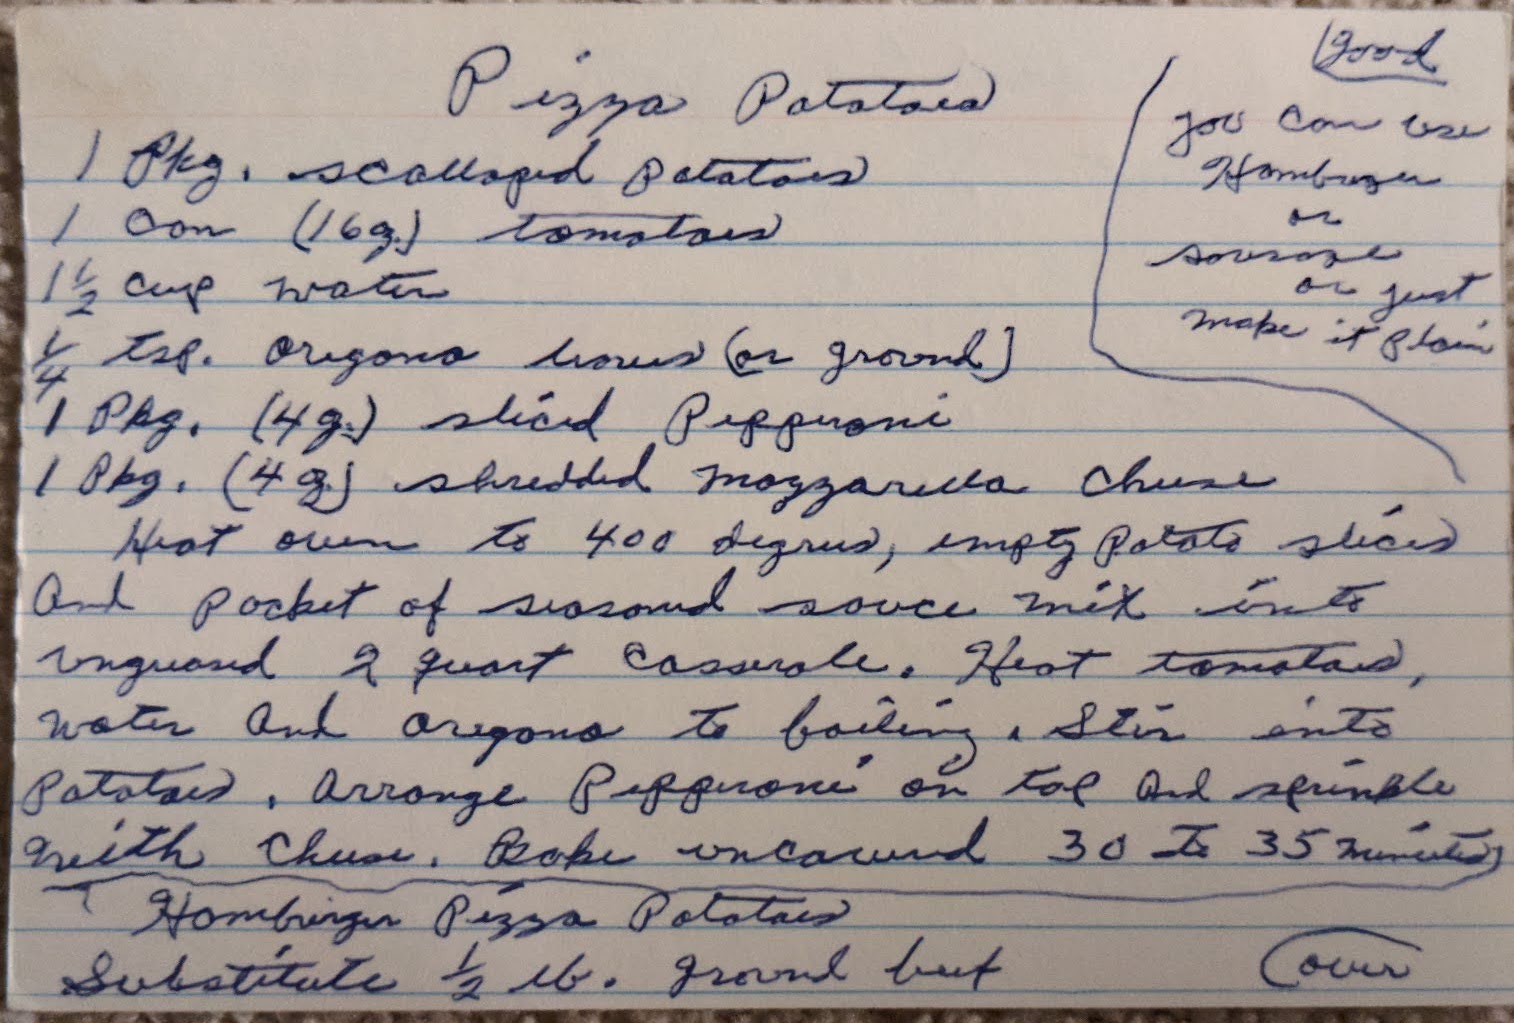 Good
Pizza Potatoes
you can use
Hamburger
or
sausage
or just
make it plain
1 Pkg. scalloped potatoes
1 Can (16 oz.) tomatoes
1 1/2 cup water
1/4 tsp. oregano leaves (or ground)
1 Pkg. (4 oz.) sliced Pepperoni
1 Pkg. (4 oz) shredded mozzarella cheese
Heat oven to 400 degrees, empty potato slices
And packet of seasoned sauce mix into
ungreased 2 quart casserole. Heat tomatoes,
water And oregano to boiling. Stir into
potatoes. Arrange Pepperoni on top And sprinkle
with cheese. Bake uncovered 30 to 35 minutes
Hamburger Pizza Potatoes
Substitute 1/2 lb. ground beef
(over